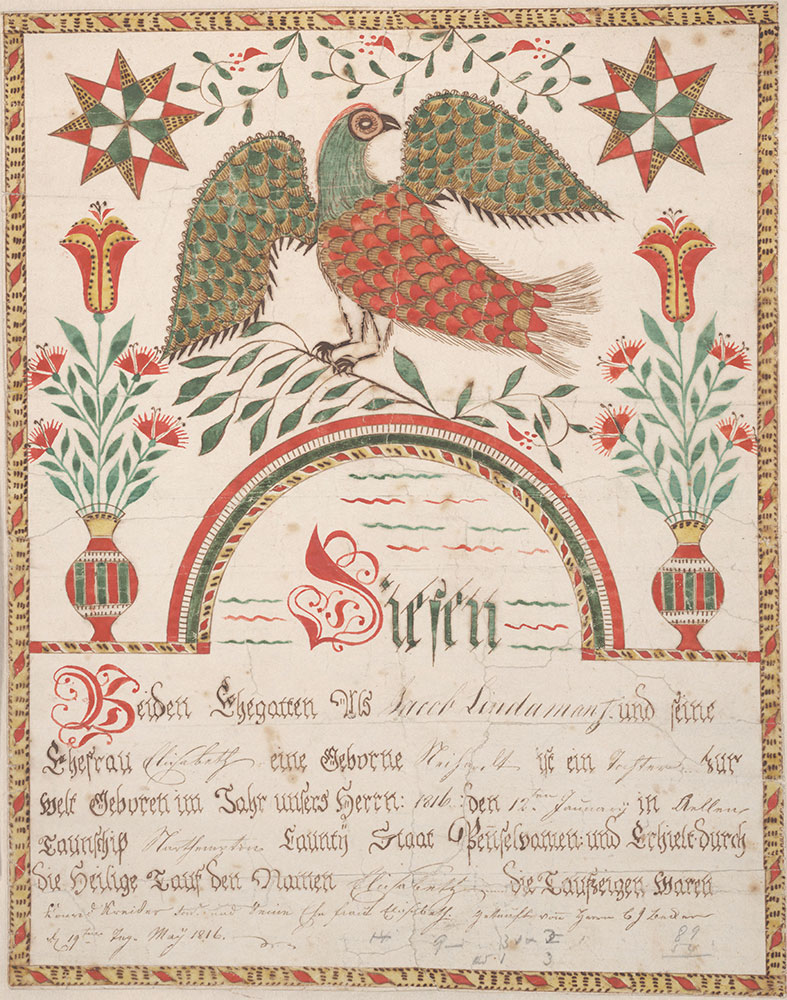 Diesen
Beiden Ehegatten Als Jacob Lindaman und seine
Ehefrau Elisabeth eine Geborne ist ein Tochter zur
Welt Geboren im Jahr unsers Herrn: 1816: den 12ten January in Aellen
Taunschip Northempton Caunty Staat Penselvanien: und Erhielt durch
die Heilige Tauf den Namen Elisabeth die Taufzeigen Waren
Conrad Kreider und Seine Ehe frau Elisabeth. getauft von Herrn
d 19ten Tag May 1816.